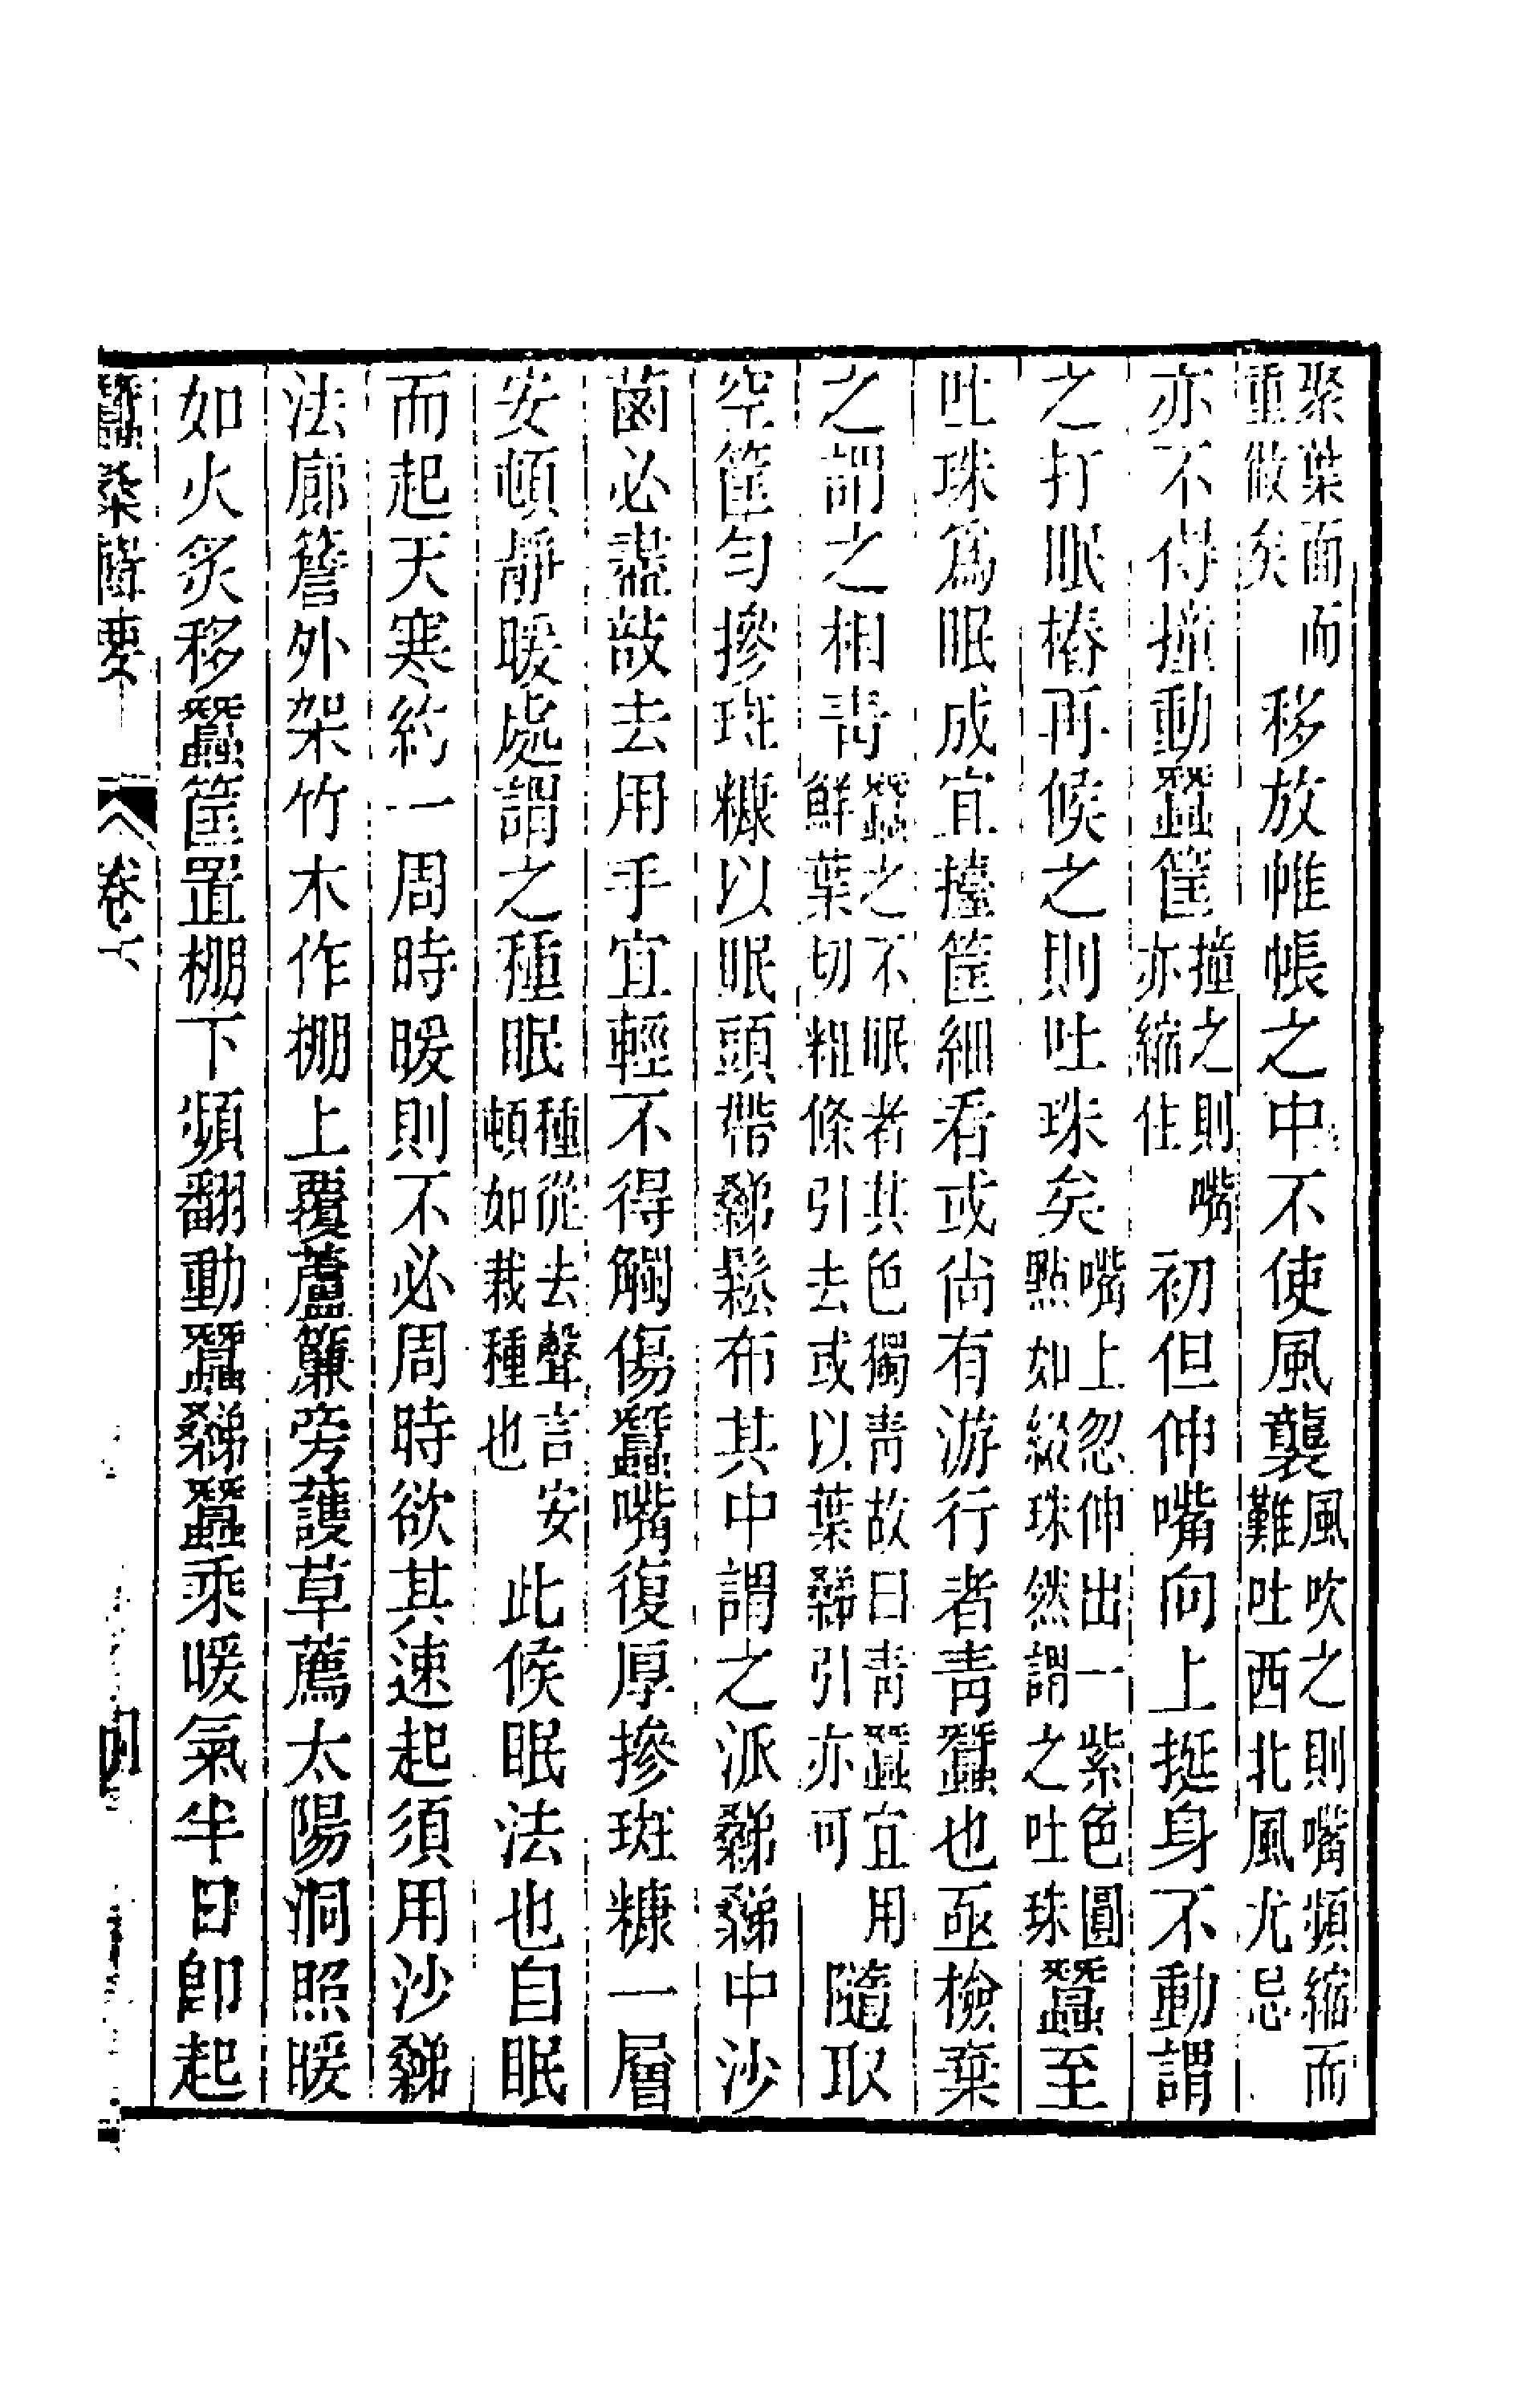 聚葉面而
重做矣
移放帷帳之中不使風襲
風吹之則嘴頻縮而
難吐西北風尤忌
亦不得撞動蠶筐
撞之則嘴
亦縮住
初但伸嘴向上挺身不動謂
之打眠樁再候之則吐珠矣
嘴上忽伸出一紫色圓
點如綴珠然謂之吐珠
蠶至
吐珠爲眠成宜擡筐細看或尙有游行者靑蠶也亟檢棄
之謂之相靑
蠶之不眠者其色獨靑故曰靑蠶宜用
鮮葉切粗條引去或以葉引亦可
隨取
空筐勻摻斑糠以眠頭帶鬆布其中謂之派中沙
菌必盡敲去用手宜輕不得觸傷蠶嘴復厚摻斑糠一層
安頓靜暖處謂之種眠
種從去聲言安
頓如栽種也
此候眠法也自眠
而起天寒約一周時暖則不必周時欲其速起須用沙
法廊簷外架竹木作棚上覆蘆簾旁護草薦太陽洞照暖
如火炙移蠶筐置棚下頻翻動蠶蠶乘暖氣半日卽起
蠶桑要 卷下 四